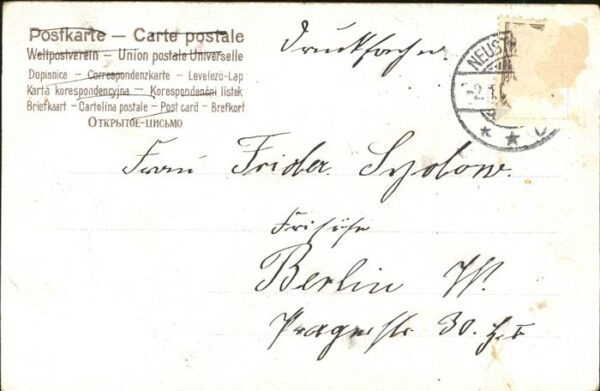 Postkarte — Carte postale
Weltpostverein — Union postale Universelle
Dopisnice — Correspondenzkarte — Levelező-Lap
Karta korespondencyjna — Korespondenčni listek
Briefkaart — Cartolina postale — Post card — Brefkort
Открытое-письмо
Drucksache.
NEUST
-2.1.
Frau Frieder. Sydow.
Berlin W.
Pragerstr 30.